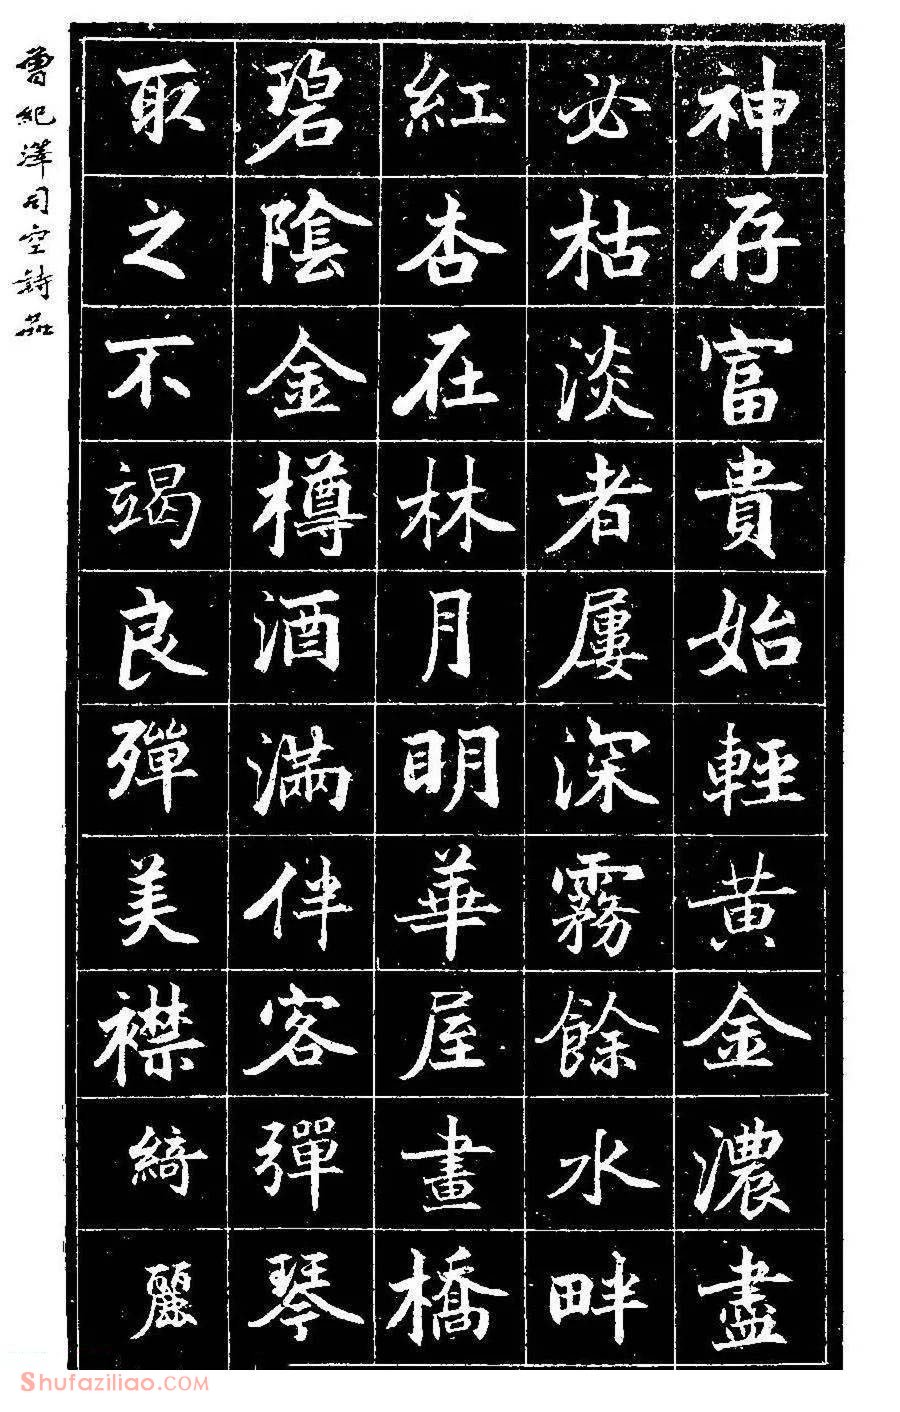 神存富貴始輕黄金濃盡
必枯淡者屢深霧餘水畔
紅杏在林月明華屋畫橋
碧陰金樽酒滿伴客彈琴
取之不竭良殫美襟綺麗
曾紀澤司空詩品
Shufaziliao.COM